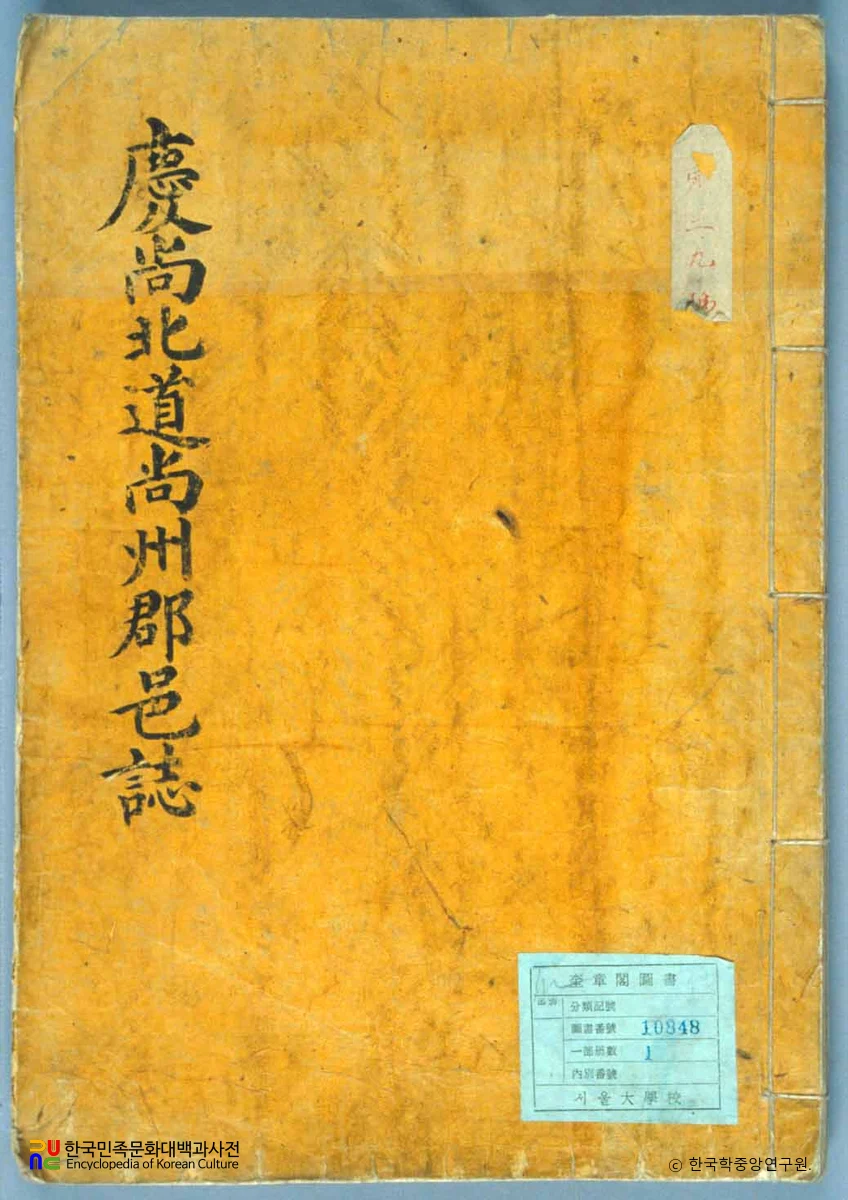 慶尚北道尚州郡邑誌
奎章閣圖書
分類記號
圖書番號 10848
一部冊數 1
內別番號
서울大學校
한국민족문화대백과사전
Encyclopedia of Korean Culture
© 한국학중앙연구원.